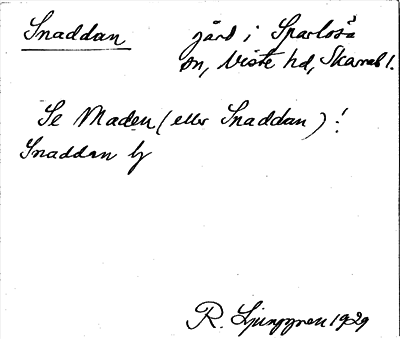 Snaddan gård i Sparlösa
sn, Viste hd, Skarab l.
Se Maden (eller Snaddan)!
Snaddan by
R. Ljunggren 1929